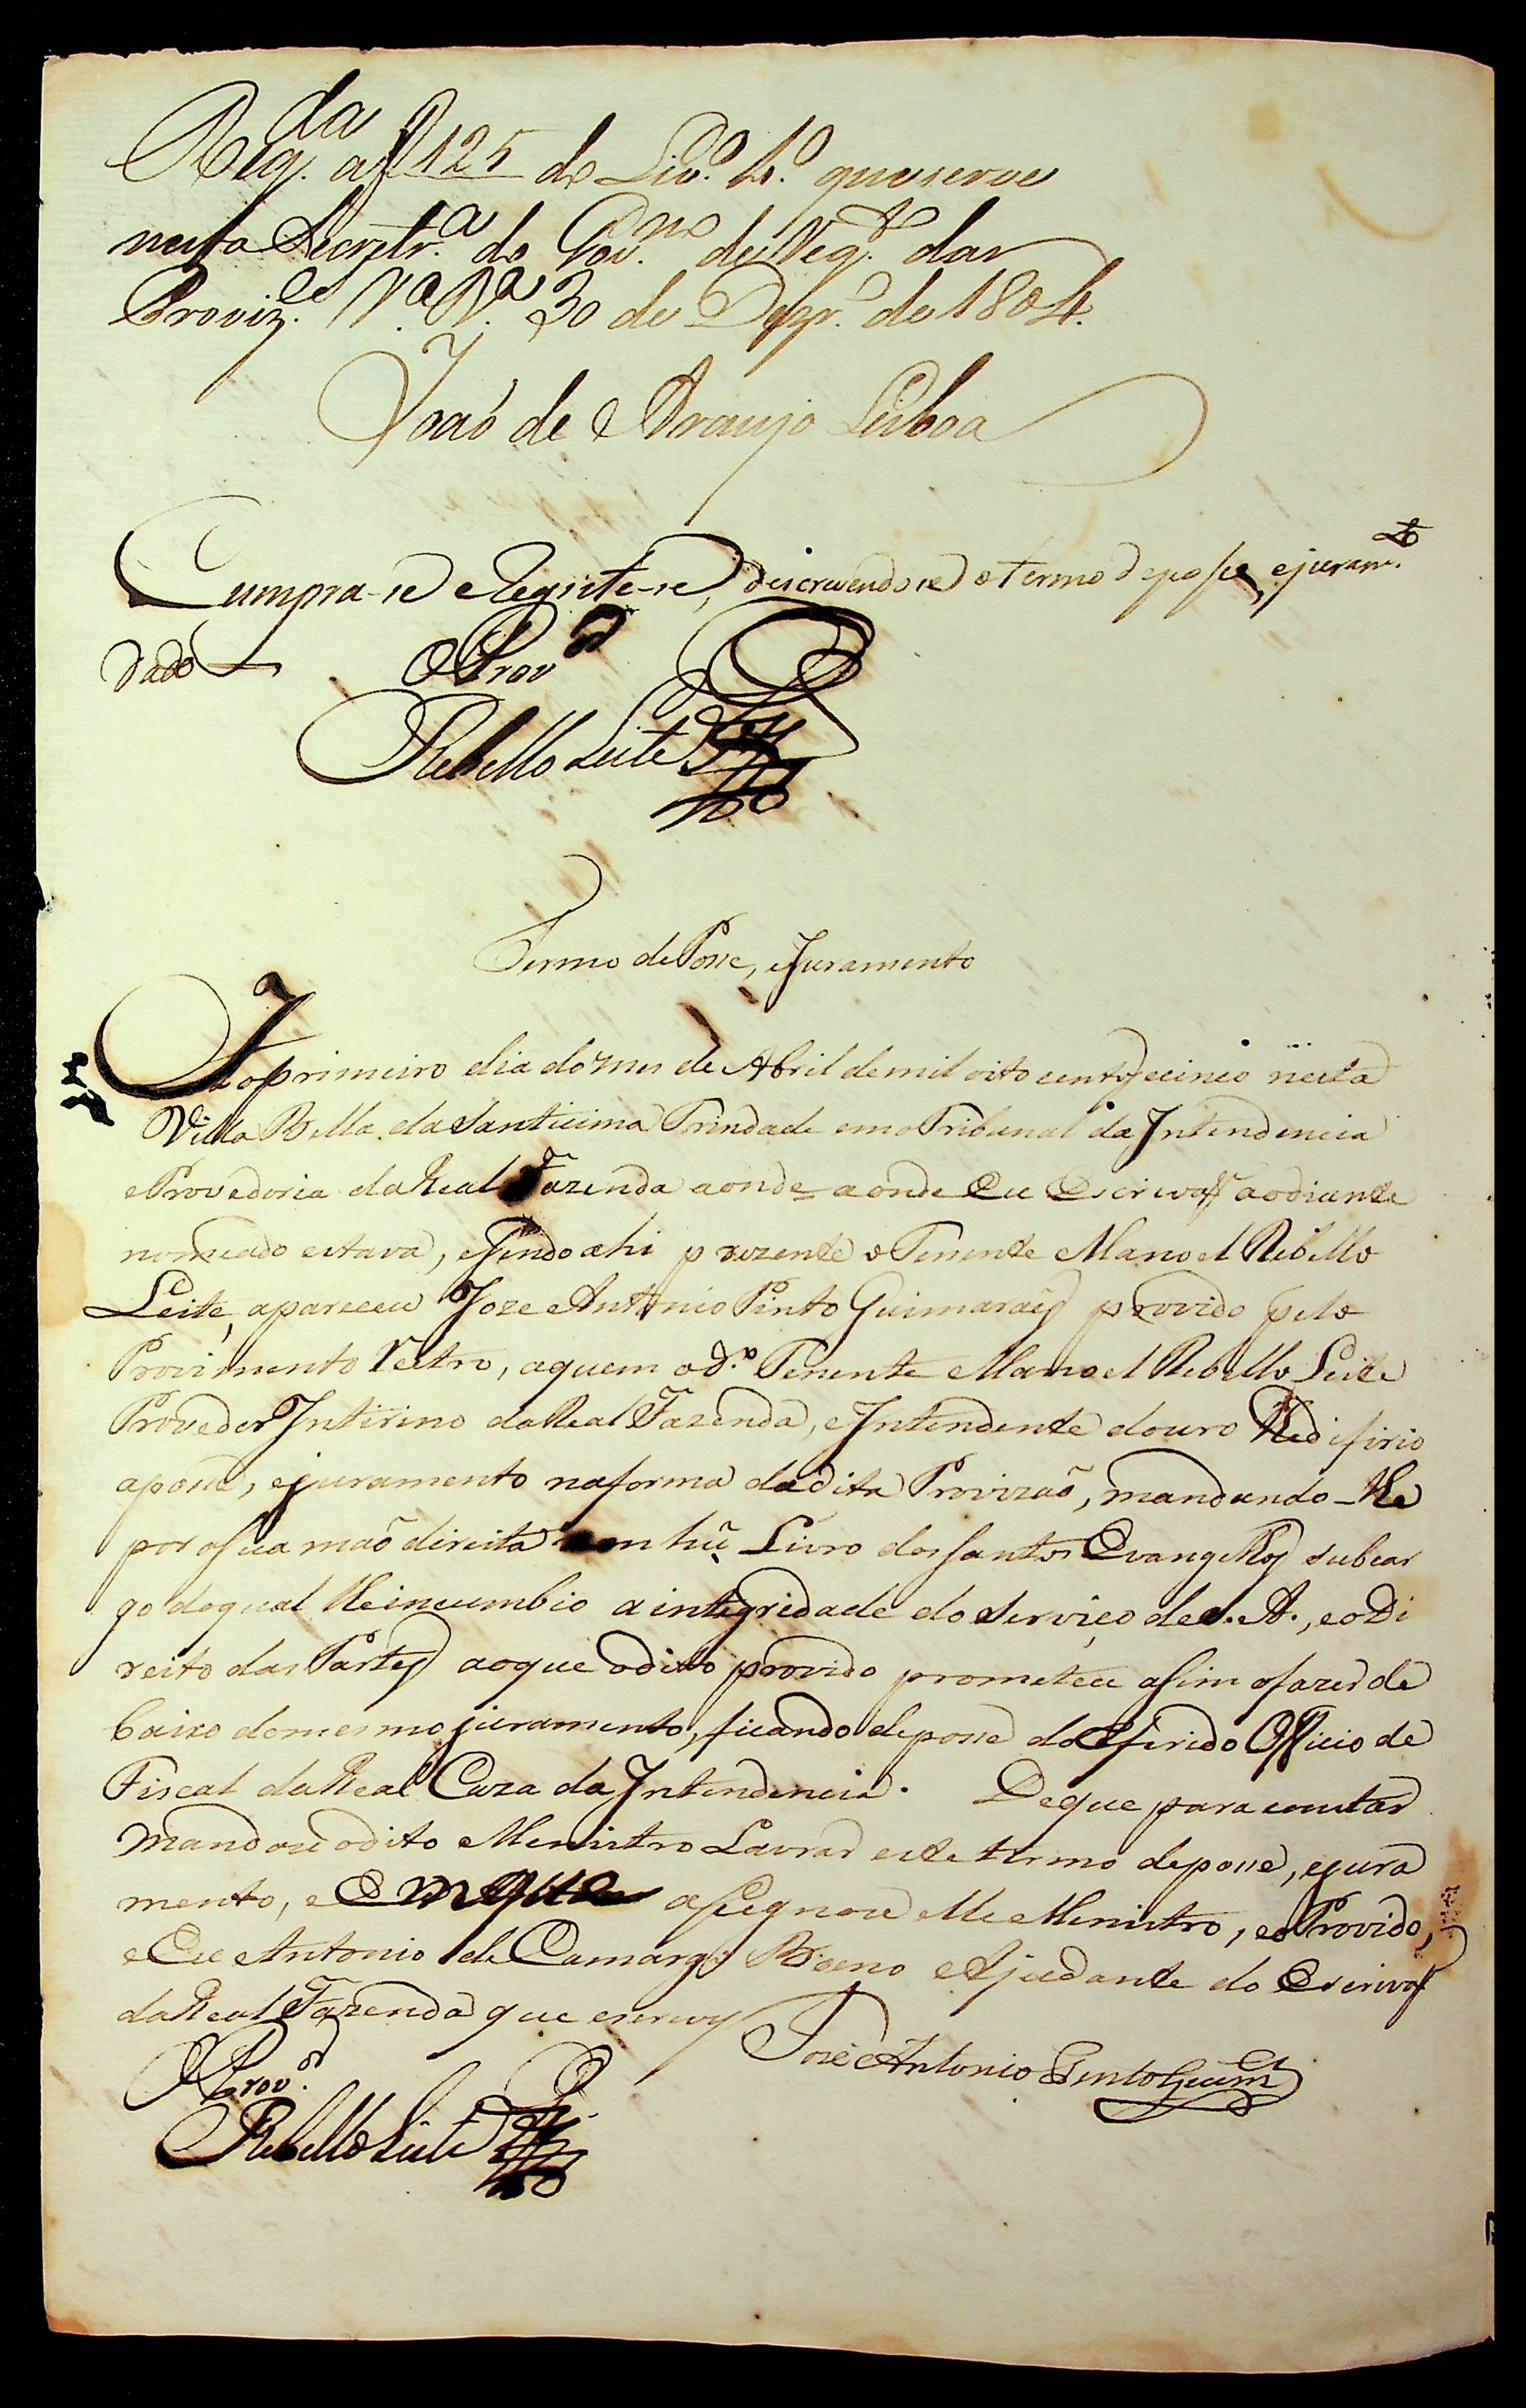 Reg.da a f 125 do Liv.o 4.o que serve
nesta Secretr.a do Gov.no de Reg.to das
Proviz.es V.a B.a 30 de Dezr.o de 1804.
Joaõ de Araujo Lisboa
Cumpra-se e Registe-se, descrevendose o termo de posse, e juram.to
dado
O Prov.or
Rebello Leite
Termo de Posse, e Juramento
Ao primeiro dia do mes de Abril de mil oito centos e cinco nesta
Villa Bella da Santicima Trindade em o Tribunal da Intendencia
e Provedoria da Real Fazenda aonde aonde Eu Escrivaõ ao diante
nomeado estava, e sendo ahi prezente o Tenente Manoel Rebello
Leite, apareceu Joze Antonio Pinto Guimaraes provido pelo
Provimento Retro, a quem o d.o Tenente Manoel Rebello Leite
Provedor Intirino da Real Fazenda, e Intendente do ouro lhe difirio
a posse, e juramento na forma da dita Provizaõ, mandando-lhe
por a sua maõ direita em hũ Livro dos santos Evangelhos subcar
go do qual lhe incumbio a integridade do serviço de S. A., e o Di
reito das Partes ao que o dito provido prometeu assim o fazer de
baixo do mesmo juramento, ficando de posse do referido Officio de
Fiscal da Real Caza da Intendencia. De que para constar
mandou o dito Menistro Lavrar este termo de posse, e jura
mento, e em que assegnou elle Menistro, e o Provido,
e Eu Antonio de Camargo Bueno Ajudante do Escrivaõ
da Real Fazenda que escrevy
Jozé Antonio Pinto Guim.es
O Prov.or
Rebello Leite